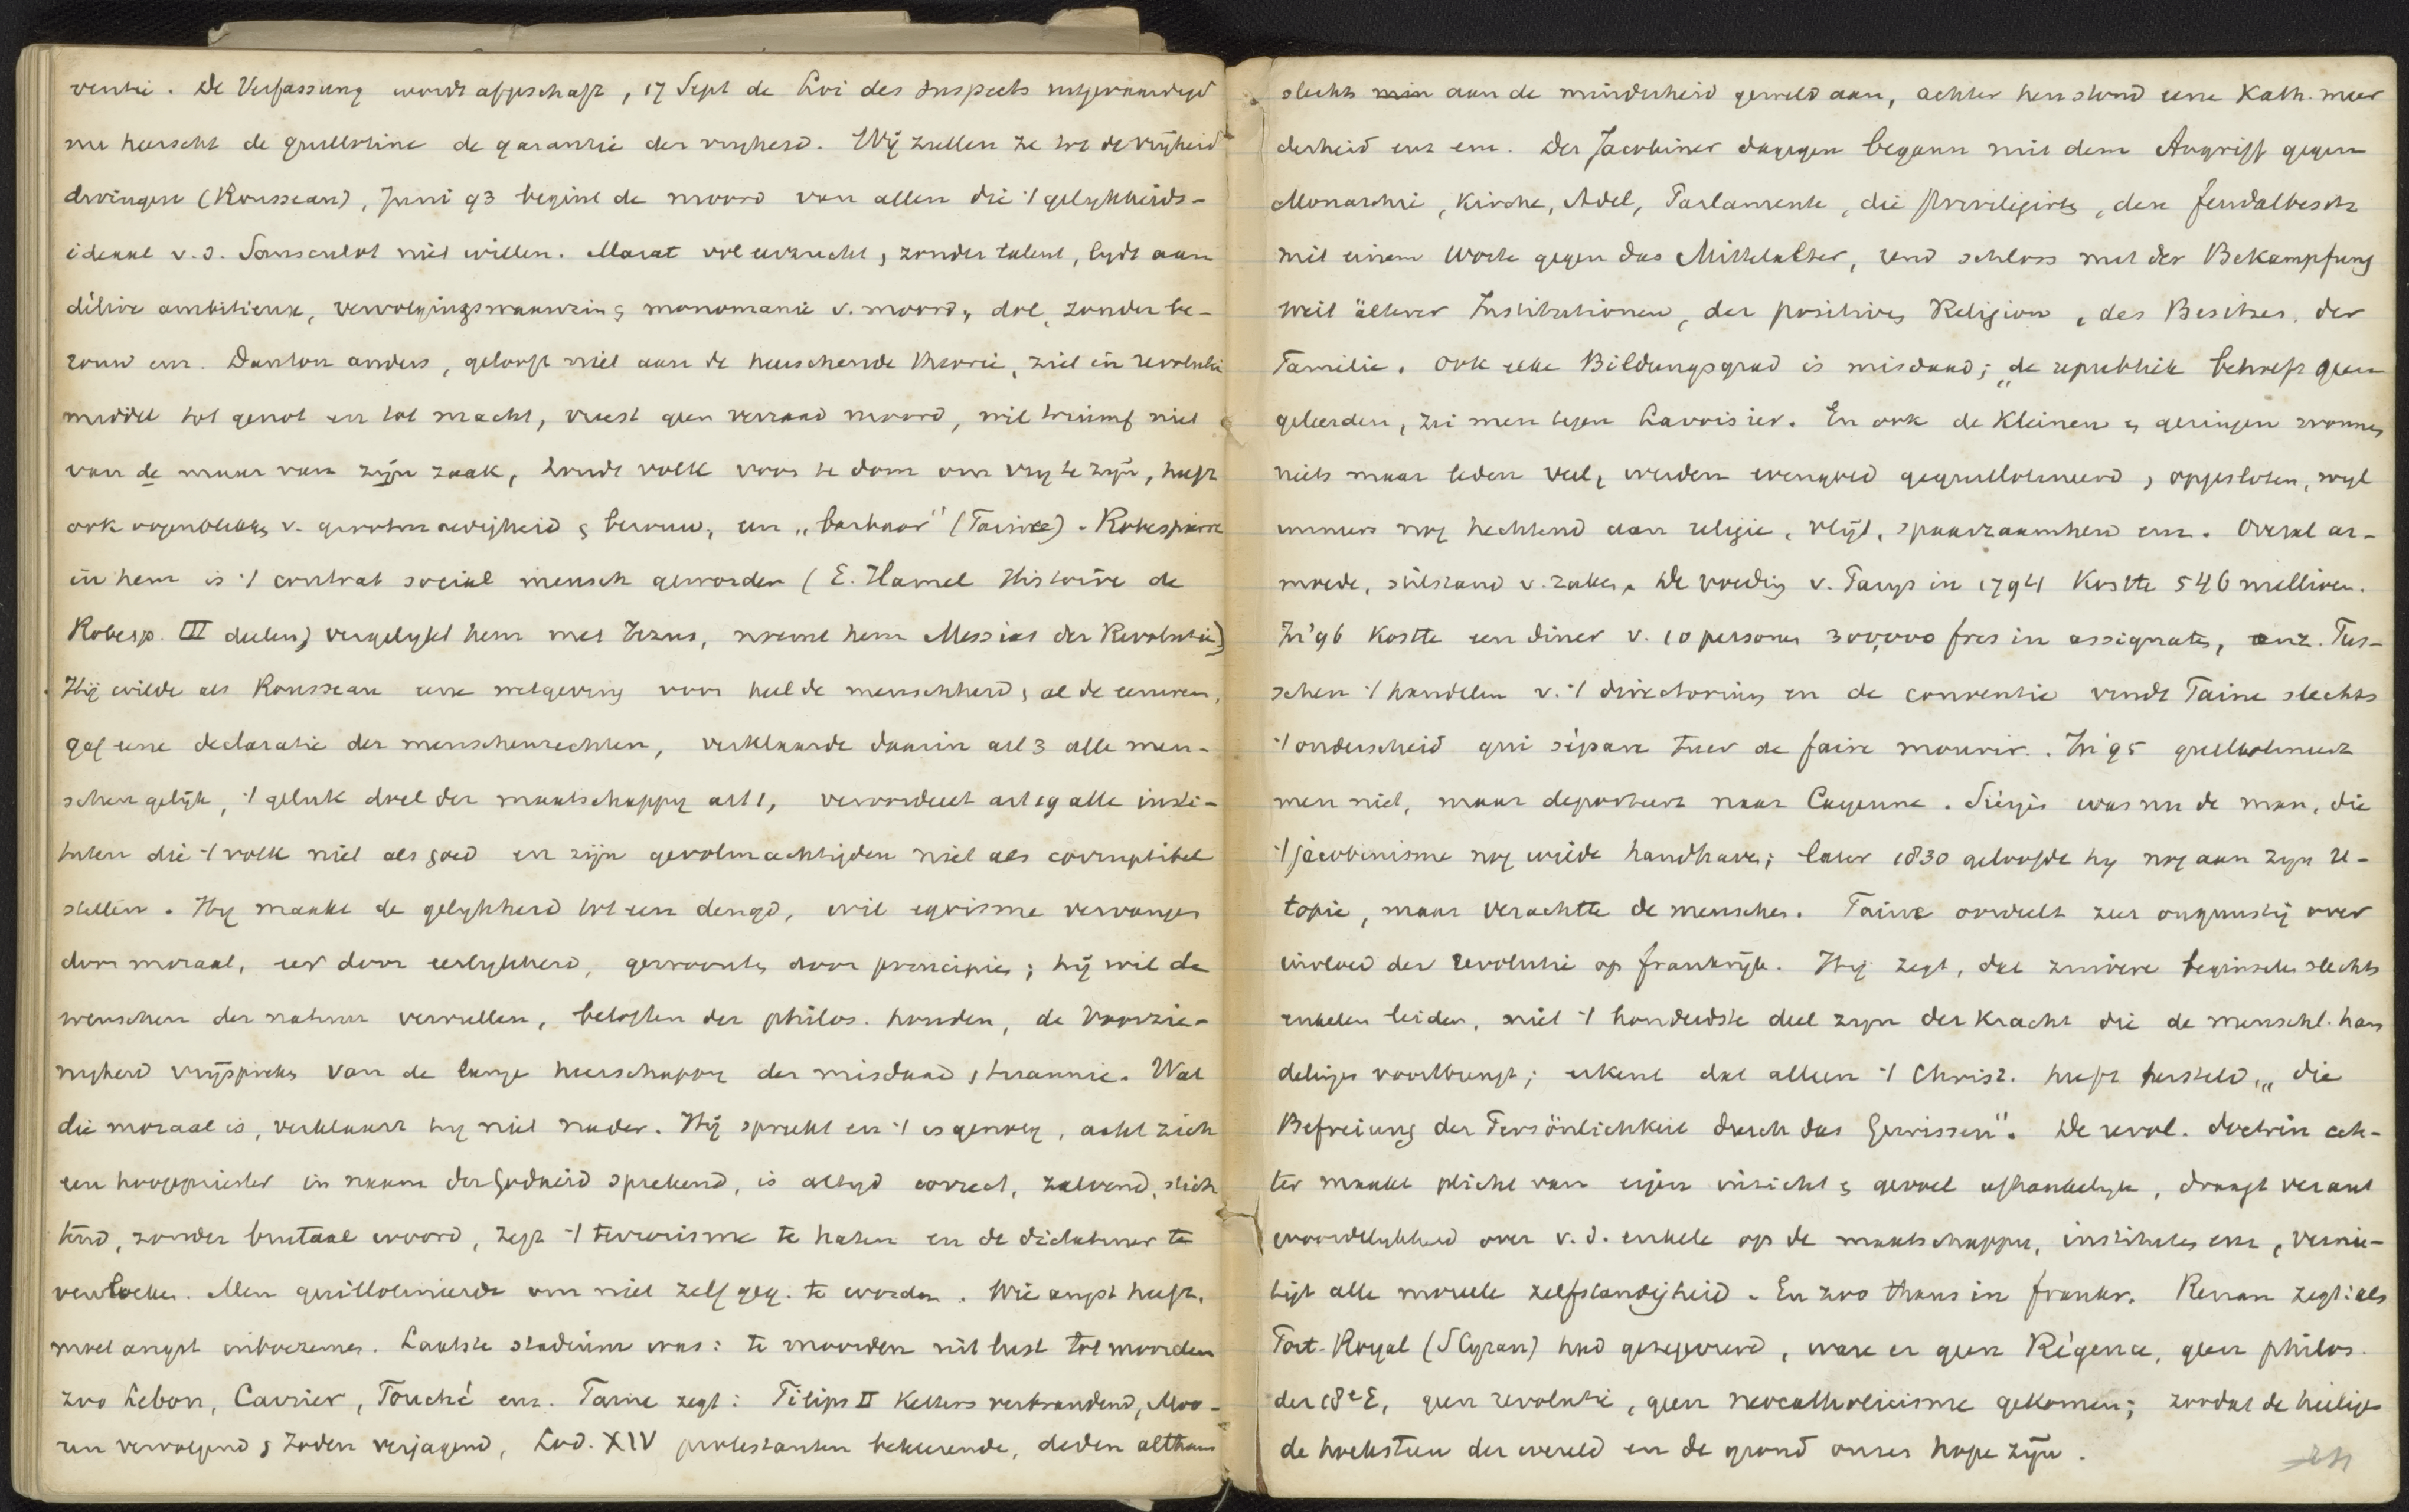 ventie. De Verfassung wordt afgeschaft, 17 Sept de Loi des suspects uitgevaardigd
nu heerscht de guillotine de garantie der vryheid. Wij zullen ze tot de vrijheid
dwingen (Rousseau), Juni 93 begint de moord van allen die 't gelykheids-
ideaal v.d. Sansculot niet willen. Marat vol eerzucht, zonder talent, lydt aan
délire ambitieux, vervolgingswaanzin & monomanie v. moord, dol, zonder be-
rouw enz. Danton anders, gelooft niet aan de heerschende theorie, ziet in revolutie
middel tot genot en tot macht, vreest geen verraad moord, wil triumf niet
van de maar van zijn zaak, houdt volk voor te dom om vry te zijn, heeft
ook oogenblikken v. grootmoedigheid & berouw, een „barbaar" (Taine). Robespierre
in hem is 't contrat social mensch geworden (E. Hamel Histoire de
Robesp. III deelen, vergelykt hem met Jezus, noemt hem Messias der Revolutie)
Hij wilde als Rousseau eene wetgeving voor heel de menschheid, al de eeuwen,
gaf eene declaratie der menschenrechten, verklaarde daarin art 3 alle men-
schen gelijk, 't geluk doel der maatschappy art 1, veroordeelt art 19 alle insti-
tuten die 't volk niet als goed en zijn gevolmachtigden niet als corruptibel
stellen. Hy maakt de gelykheid tot een deugd, wil egoisme vervangen
door moraal, eer door eerlykheid, gewoonte door principies; hij wil de
wenschen der natuur vervullen, beloften der philos. houden, de Voorzie-
nigheid vrijspreken van de lange heerschappy der misdaad & tirannie. Wat
die moraal is, verklaart hy niet nader. Hij spreekt en 't is genoeg, acht zich
een hoogepriester in naam der Godheid sprekend, is altyd correct, zalvend, stich
tend, zonder brutaal woord, zegt 't terrorisme te haten en de dictatuur te
vervloeken. Men guillotineerde om niet zelf geg. te worden. Wie angst heeft,
moet angst inboezemen. Laatste stadium was: te moorden uit lust tot moorden
zoo Lebon, Carrier, Fouché enz. Taine zegt: Filips II Ketters verbrandend, Moo-
ren vervolgend & Joden verjagend, Lod. XIV protestanten bekeerende, deden althans
slechts aan de minderheid geweld aan, achter hen stond eene Kath. meer
derheid enz enz. Der Jacobiner dagegen begann mit dem Angriff gegen
Monarchie, Kirche, Adel, Parlamente, die Privilegirten, den feudalbesitz
mit einem Worte gegen das Mittelalter, und schloss mit der Bekampfung
weit älterer Institutionen, der positiven Religion, des Besitzes, der
Familie. Ook elke Bildungsgrad is misdaad; „de republiek behoeft geen
geleerden, zei men tegen Lavoisier. En ook de Kleinen & geringen wonnen
niets maar leden veel, werden evengoed geguillotineerd, opgesloten, wyl
immers nog hechtend aan religie, vlijt, spaarzaamheid enz. Overal ar-
moede, stilstand v. zaken. De voeding v. Parys in 1794 kostte 546 millioen.
In '96 kostte een diner v. 10 personen 300,000 frcs in assignaten, enz. Tus-
schen 't handelen v. 't directorium en de conventie vindt Taine slechts
't onderscheid qui sépare tuer de faire mourir. In '95 guillotineert
men niet, maar deporteert naar Cayenne. Siéyès was nu de man, die
't jacobinisme nog wilde handhaven; later 1830 geloofde hy nog aan zyn U-
topie, maar verachtte de menschen. Taine oordeelt zeer ongunstig over
invloed der revolutie op frankrijk. Hij zegt, dat zuivere beginselen slechts
enkelen leiden, niet 't honderdste deel zyn der kracht die de menschl. han
delingen voortbrengt; erkent dat alleen 't Christ. heeft hersteld, „die
Befreiung der Persönlichkeit durch das Gewissen". De revol. doctrin ech-
ter maakt plicht van eigen inzicht & gevoel afhankelyk, draagt verant
woordelykheid over v.d. enkele op de maatschappy, instituten enz, vernie-
tigt alle moreele zelfstandigheid. En zoo thans in frankr. Renan zegt: als
Port-Royal (S Cyran) had gezegevierd, ware er geen Régence, geen philos.
der 18e E, geen revolutie, geen neocatholicisme gekomen; zoodat de heiligen
de hoeksteen der wereld en de grond onzer hope zijn.